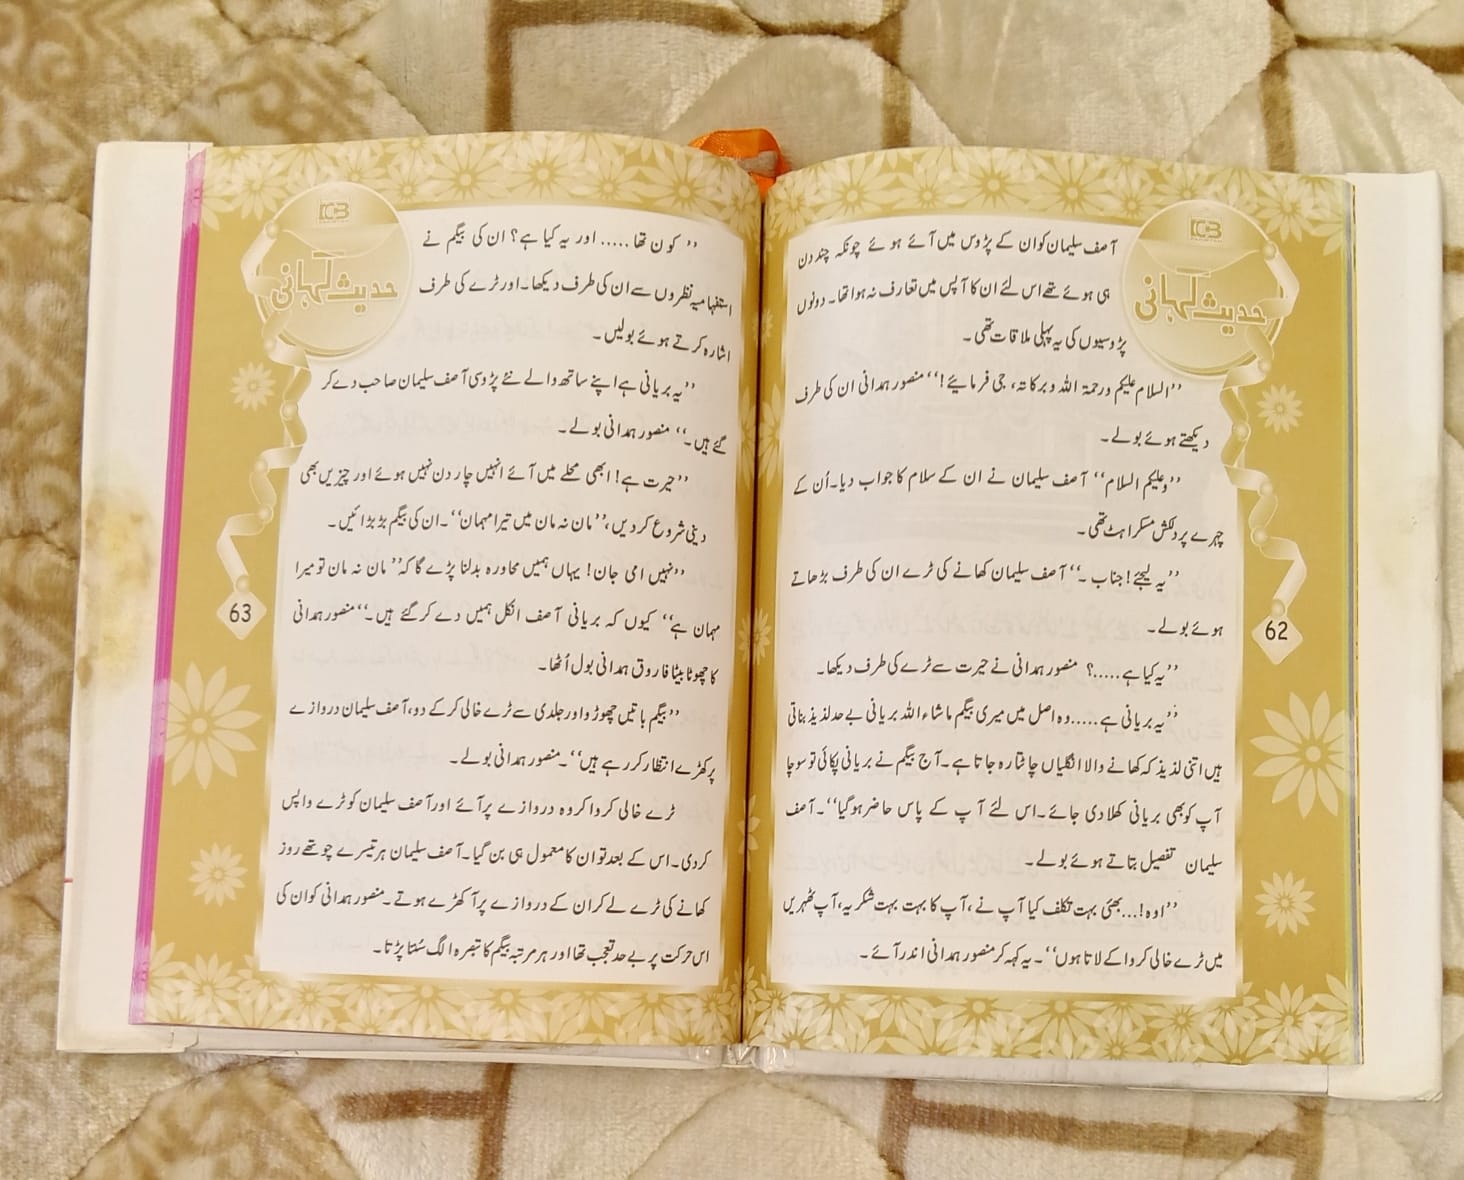 حدیث کہانی
آصف سلیمان کو ان کے پڑوس میں آئے ہوئے چونکہ چند دن
ہی ہوئے تھے اس لئے ان کا آپس میں تعارف نہ ہوا تھا۔ دونوں
پڑوسیوں کی یہ پہلی ملاقات تھی۔
’’السلام علیکم ورحمۃ اللہ وبرکاتہ، جی فرمائیے!‘‘ منصور ہمدانی ان کی طرف
دیکھتے ہوئے بولے۔
’’وعلیکم السلام‘‘ آصف سلیمان نے ان کے سلام کا جواب دیا۔ اُن کے
چہرے پر دلکش مسکراہٹ تھی۔
’’یہ لیجئے! جناب۔‘‘ آصف سلیمان کھانے کی ٹرے ان کی طرف بڑھاتے
ہوئے بولے۔
’’یہ کیا ہے.....؟ منصور ہمدانی نے حیرت سے ٹرے کی طرف دیکھا۔
’’یہ بریانی ہے.....وہ اصل میں میری بیگم ماشاء اللہ بریانی بے حد لذیذ بناتی
ہیں اتنی لذیذ کہ کھانے والا انگلیاں چاٹتا رہ جاتا ہے۔ آج بیگم نے بریانی پکائی تو سوچا
آپ کو بھی بریانی کھلا دی جائے۔ اس لئے آپ کے پاس حاضر ہو گیا‘‘۔ آصف
سلیمان تفصیل بتاتے ہوئے بولے۔
’’اوہ!...بھئی بہت تکلف کیا آپ نے، آپ کا بہت بہت شکریہ، آپ ٹھہریں
میں ٹرے خالی کروا کے لاتا ہوں‘‘۔ یہ کہہ کر منصور ہمدانی اندر آئے۔
62
حدیث کہانی
’’کون تھا..... اور یہ کیا ہے؟ ان کی بیگم نے
استفہامیہ نظروں سے ان کی طرف دیکھا۔ اور ٹرے کی طرف
اشارہ کرتے ہوئے بولیں۔
’’یہ بریانی ہے اپنے ساتھ والے نئے پڑوسی آصف سلیمان صاحب دے کر
گئے ہیں۔‘‘ منصور ہمدانی بولے۔
’’حیرت ہے! ابھی محلے میں آئے انہیں چار دن نہیں ہوئے اور چیزیں بھی
دینی شروع کر دیں،’’مان نہ مان میں تیرا مہمان‘‘۔ ان کی بیگم بڑبڑائیں۔
’’نہیں امی جان! یہاں ہمیں محاورہ بدلنا پڑے گا کہ’’ مان نہ مان تو میرا
مہمان ہے‘‘ کیوں کہ بریانی آصف انکل ہمیں دے کر گئے ہیں۔‘‘ منصور ہمدانی
کا چھوٹا بیٹا فاروق ہمدانی بول اُٹھا۔
’’بیگم باتیں چھوڑو اور جلدی سے ٹرے خالی کر کے دو، آصف سلیمان دروازے
پر کھڑے انتظار کر رہے ہیں‘‘۔ منصور ہمدانی بولے۔
ٹرے خالی کروا کر وہ دروازے پر آئے اور آصف سلیمان کو ٹرے واپس
کر دی۔ اس کے بعد تو ان کا معمول ہی بن گیا۔ آصف سلیمان ہر تیسرے چوتھے روز
کھانے کی ٹرے لے کر ان کے دروازے پر آ کھڑے ہوتے۔ منصور ہمدانی کو ان کی
اس حرکت پر بے حد تعجب تھا اور ہر مرتبہ بیگم کا تبصرہ الگ سُننا پڑتا۔
63